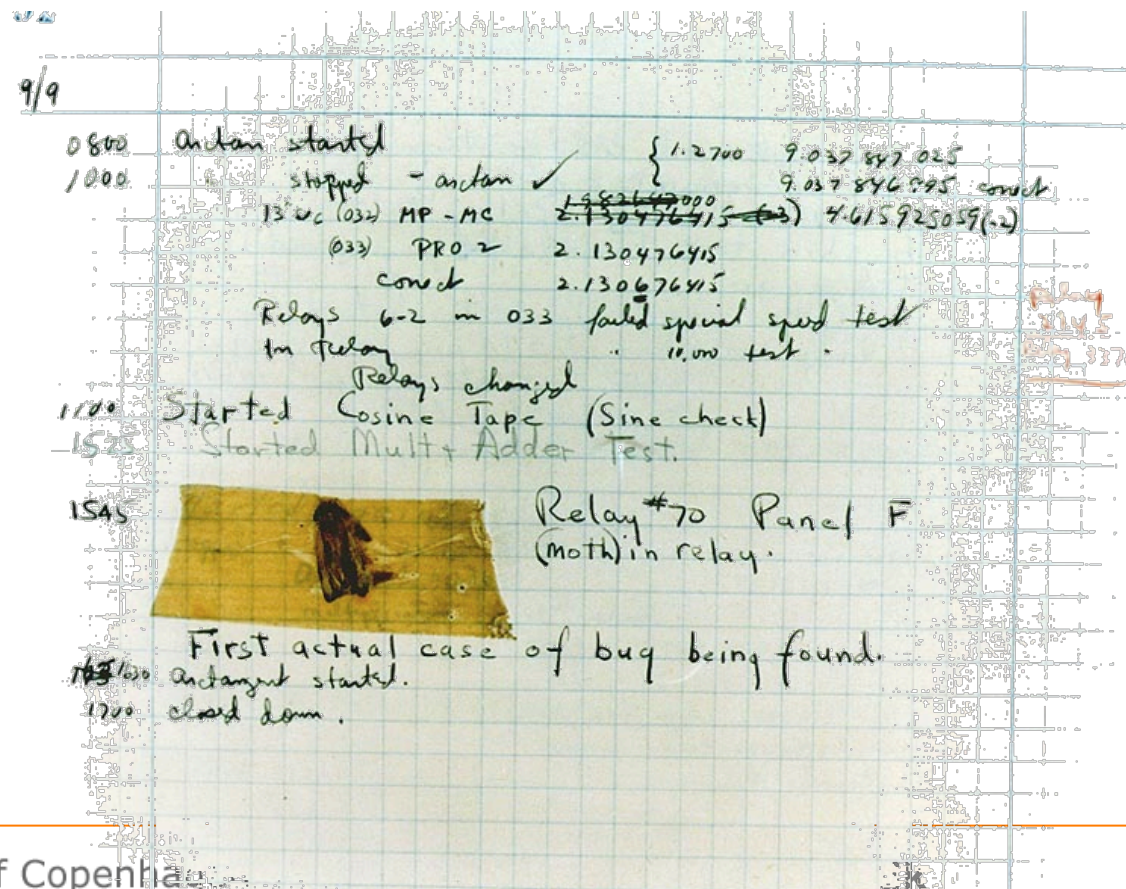 92
9/9
0800 Antan started
1000 stopped - antan ✓ { 1.2700 9.037 847 025
9.037 846 995 conect
13" uc (032) MP - MC 2.130476415 4.615925059(-2)
(033) PRO 2 2.130476415
conect 2.130676415
Relays 6-2 in 033 failed special speed test
In Relay " 10,000 test .
Relays changed
1100 Started Cosine Tape (Sine check)
1525 Started Mult + Adder Test.
1545 Relay #70 Panel F
(moth) in relay.
First actual case of bug being found.
1630 Antangent started.
1700 closed down .
Relay
337
f Copenha